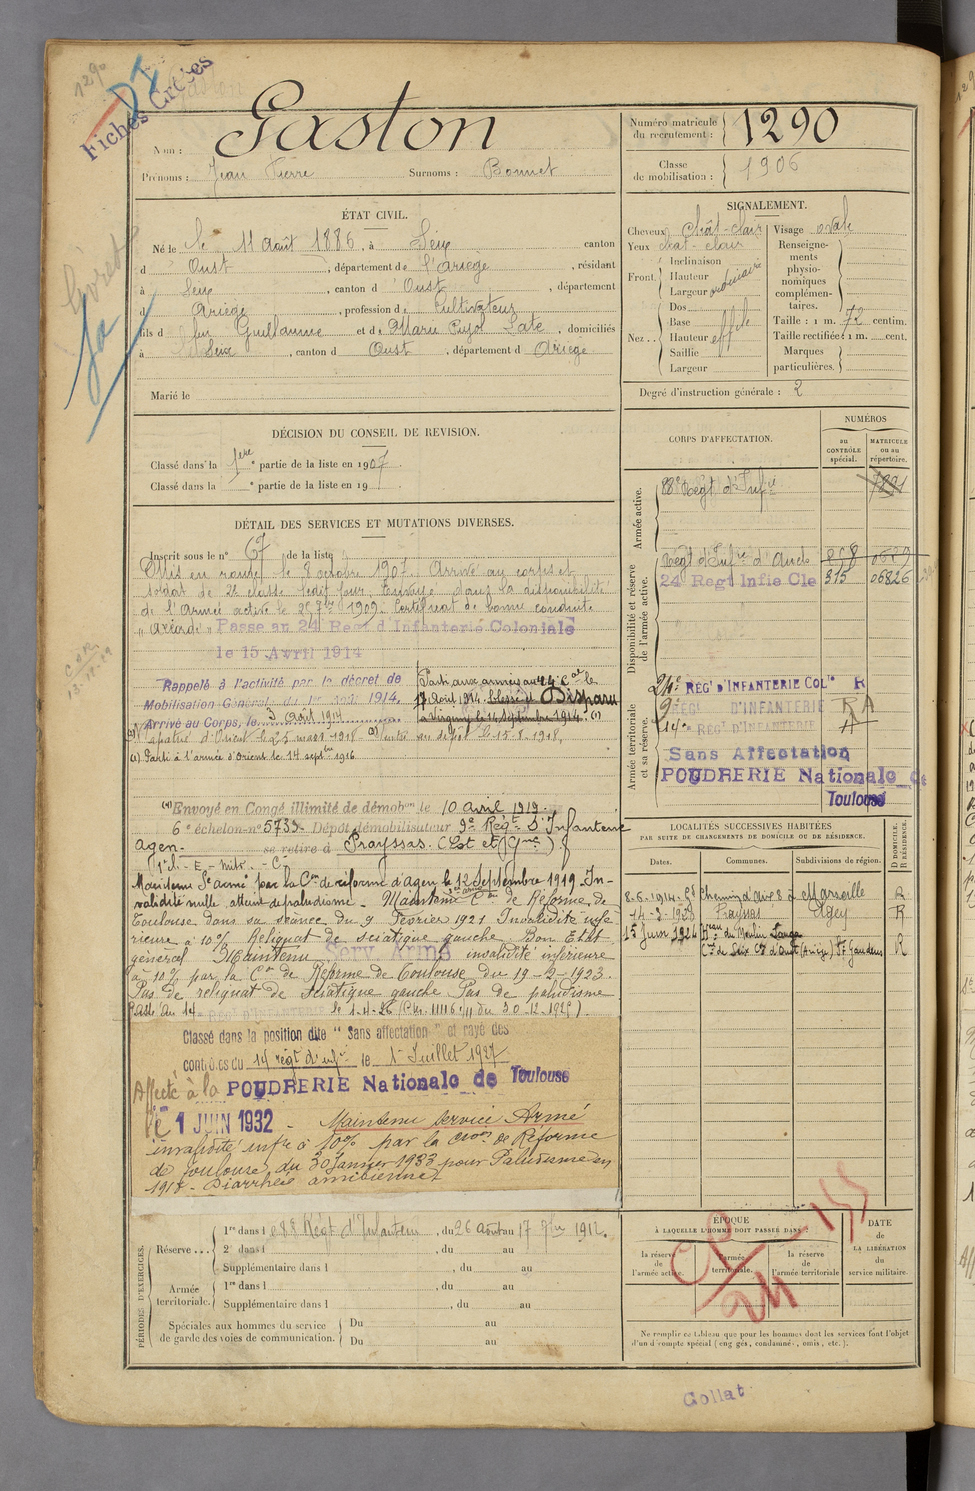 1290
Fiches Créées
Nom : Gaston
Prénoms : Jean Pierre Surnoms : Bonnet
Numéro matricule du recrutement : 1290
Classe de mobilisation : 1906
ÉTAT CIVIL.
Né le le 11 Août 1886, à Seix canton
d Oust, département de l'Ariège, résidant
à Seix, canton d Oust, département
d Ariège, profession de Cultivateur
fils de feu Guillaume et de Marie Pujol Late, domiciliés
à Seix, canton d Oust, département d Ariège.
Marié le
SIGNALEMENT.
Cheveux Chât-clair Visage ovale
Yeux chat-clair Renseignements physionomiques complémentaires.
Front. Inclinaison
Hauteur ordinaire
Largeur
Nez.. Dos
Base
Hauteur effilé
Saillie
Largeur
Taille : 1 m. 72 centim.
Taille rectifiée : 1 m. cent.
Marques particulières.
Degré d'instruction générale : 2
DÉCISION DU CONSEIL DE REVISION.
Classé dans la 1ère partie de la liste en 1907.
Classé dans la e partie de la liste en 19
DÉTAIL DES SERVICES ET MUTATIONS DIVERSES.
Inscrit sous le n° 67 de la liste
Mis en route le 8 octobre 1907. Arrivé au corps et
soldat de 2e classe ledit jour. Envoyé dans la disponibilité
de l'Armée active le 25 7bre 1909. Certificat de bonne conduite
"Accordé" Passé au 24 Régt d'Infanterie Coloniale
le 15 Avril 1914
Rappelé à l'activité par le décret de
Mobilisation Générale du 1er août 1914.
Arrivé au Corps, le 3 Août 1914
Parti aux armées au 24 Cal le
Août 1914. blessé et Disparu
à Virginy le 14 Septembre 1914. (1)
(2) rapatrié d'Orient le 25 mars 1918 (3) Rentré au dépôt le 15.8.1918.
(1) Parti à l'armée d'Orient le 14 septbre 1916
(4) Envoyé en Congé illimité de démobon le 10 avril 1919
6e échelon-n° 5739- Dépôt démobilisateur 9e Régt d'Infanterie
Agen- se retire à Prayssas. (Lot et Gne)
Maintenu Sce armé par la Con de réforme d'Agen le 12 Septembre 1919. Invalidité
nulle atteint de paludisme - Maintenu Con de Réforme de
Toulouse dans sa séance du 9 Février 1921 Invalidité infé
rieure à 10% Reliquat de sciatique gauche Bon Etat
général Maintenu Serv. Armé invalidité inférieure
à 10% par la Con de Réforme de Toulouse du 19-2-1923.
Pas de reliquat de sciatique gauche Pas de paludisme
Passé au 14e RÉG. D'INFANTERIE le 1-4-26 (Cire 11116 1/11 du 30-12-1925).
Classé dans la position dite "Sans affectation" et rayé des
contrôles du 14 régt d'infie le 1er Juillet 1927
Affecté à la POUDRERIE Nationale de Toulouse
le 1 JUIN 1932 - Maintenu service Armé
invalidité infre à 10% par la Con de Réforme
de Toulouse du 30 Janvier 1933 pour Paludisme en
1918 - Diarrhée amibienne
CORPS D'AFFECTATION.
NUMÉROS
au CONTRÔLE spécial.
MATRICULE ou au répertoire.
Armée active.
88e Régt d'Infie 7891
Disponibilité et réserve de l'armée active.
Régt d'Infie d'
24 Régt Infie Cle 315 06826
Armée territoriale et sa réserve.
24e RÉGt D'INFANTERIE COLle R
9 D'INFANTERIE RA
14e RÉGt D'INFANTERIE A
Sans Affectation
POUDRERIE Nationale de
Toulouse
LOCALITÉS SUCCESSIVES HABITÉES
PAR SUITE DE CHANGEMENTS DE DOMICILE OU DE RÉSIDENCE.
Dates. Communes. Subdivisions de région. D DOMICILE. R RÉSIDENCE.
8-6-1914 - 58 Chemin d'Aix 8 à Marseille R
14-3-1923 Prayssas Agen R
15 Juin 1924 Hau du Moulin Lauga
Cne de Seix Con d'Oust (Ariège) St Gaudens R
PÉRIODES D'EXERCICES.
Réserve... 1re dans le 88 Régt d'Infanterie, du 26 Août au 17 1912.
2e dans l , du au
Supplémentaire dans l , du au
Armée territoriale. 1re dans l , du au
Supplémentaire dans l , du au
Spéciales aux hommes du service de garde des voies de communication. Du au
Du au
ÉPOQUE
À LAQUELLE L'HOMME DOIT PASSER DANS :
la réserve de l'armée active.
l'armée territoriale.
la réserve de l'armée territoriale
DATE de LA LIBÉRATION du service militaire.
Ne remplir ce tableau que pour les hommes dont les services font l'objet
d'un décompte spécial (engagés, condamnés, omis, etc.).
Collat